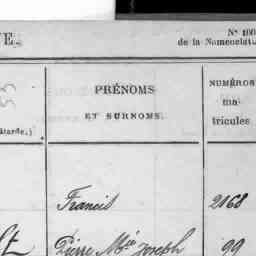 VE. N° 100
de la Nomenclatu
PRÉNOMS
ET SURNOMS.
NUMÉROS
ma
tricules
Francis 2168
Pierre Mie Joseph 99